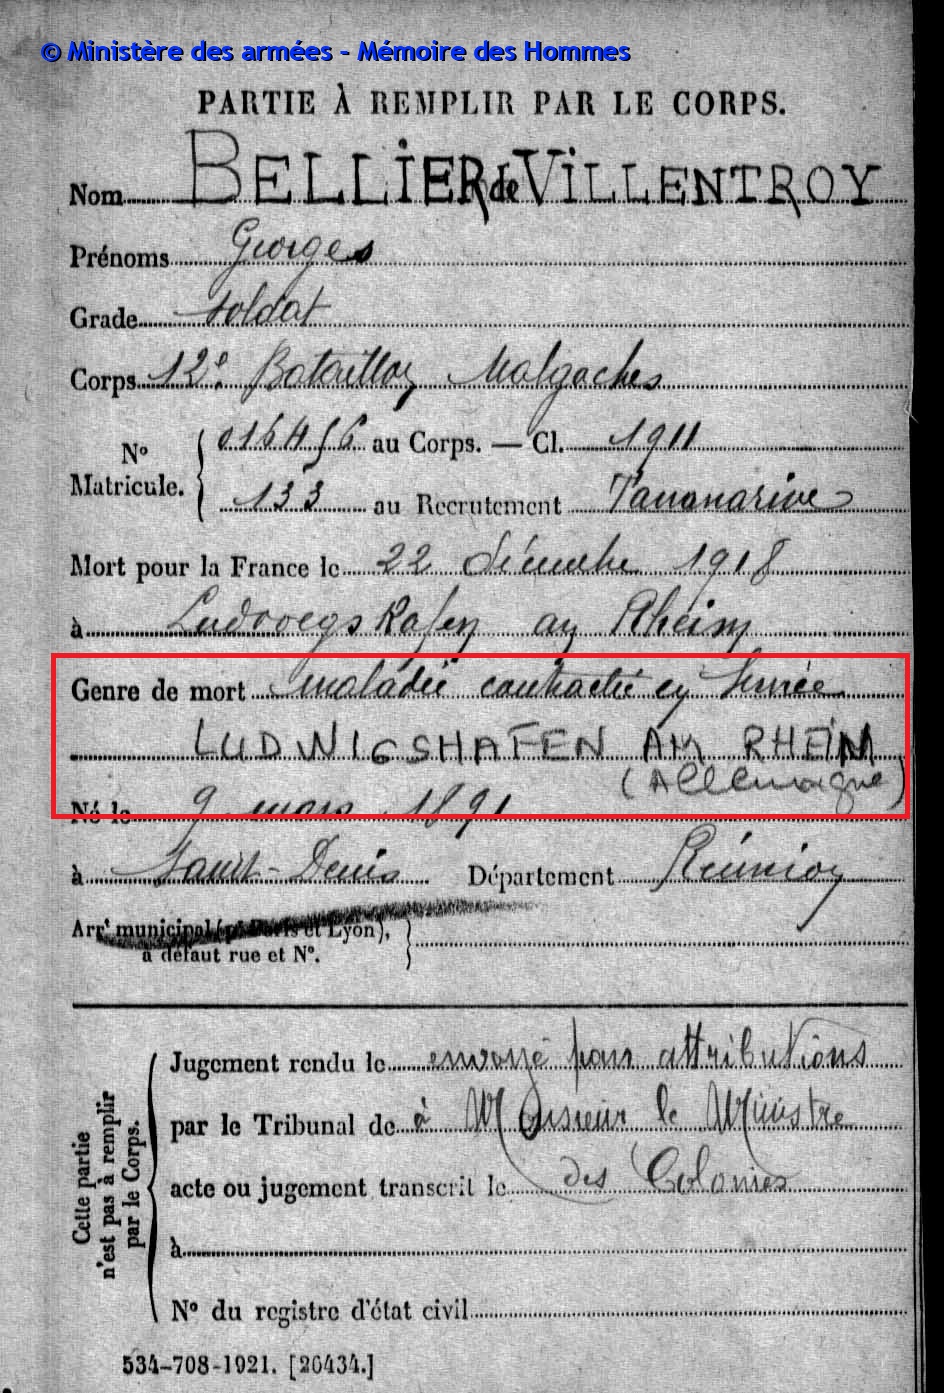 © Ministère des armées - Mémoire des Hommes
PARTIE À REMPLIR PAR LE CORPS.
Nom BELLIER de VILLENTROY
Prénoms Georges
Grade soldat
Corps 12e Bataillon Malgaches
No Matricule. { 016456 au Corps. — Cl. 1911
133 au Recrutement Tananarive
Mort pour la France le 22 décembre 1918
à Ludovegskafen am Rheim
Genre de mort maladie contractée en Service
LUDWIGSHAFEN AM RHEIN
(Allemagne)
Né le 9 mars 1891
à Saint-Denis Département Réunion
Arrt municipal (pr Paris et Lyon),
à défaut rue et No. }
Cette partie
n'est pas à remplir
par le Corps.
Jugement rendu le envoyé pour attributions
par le Tribunal de à Monsieur le Ministre
acte ou jugement transcrit le des Colonies
à
No du registre d'état civil
534-708-1921. [26434.]